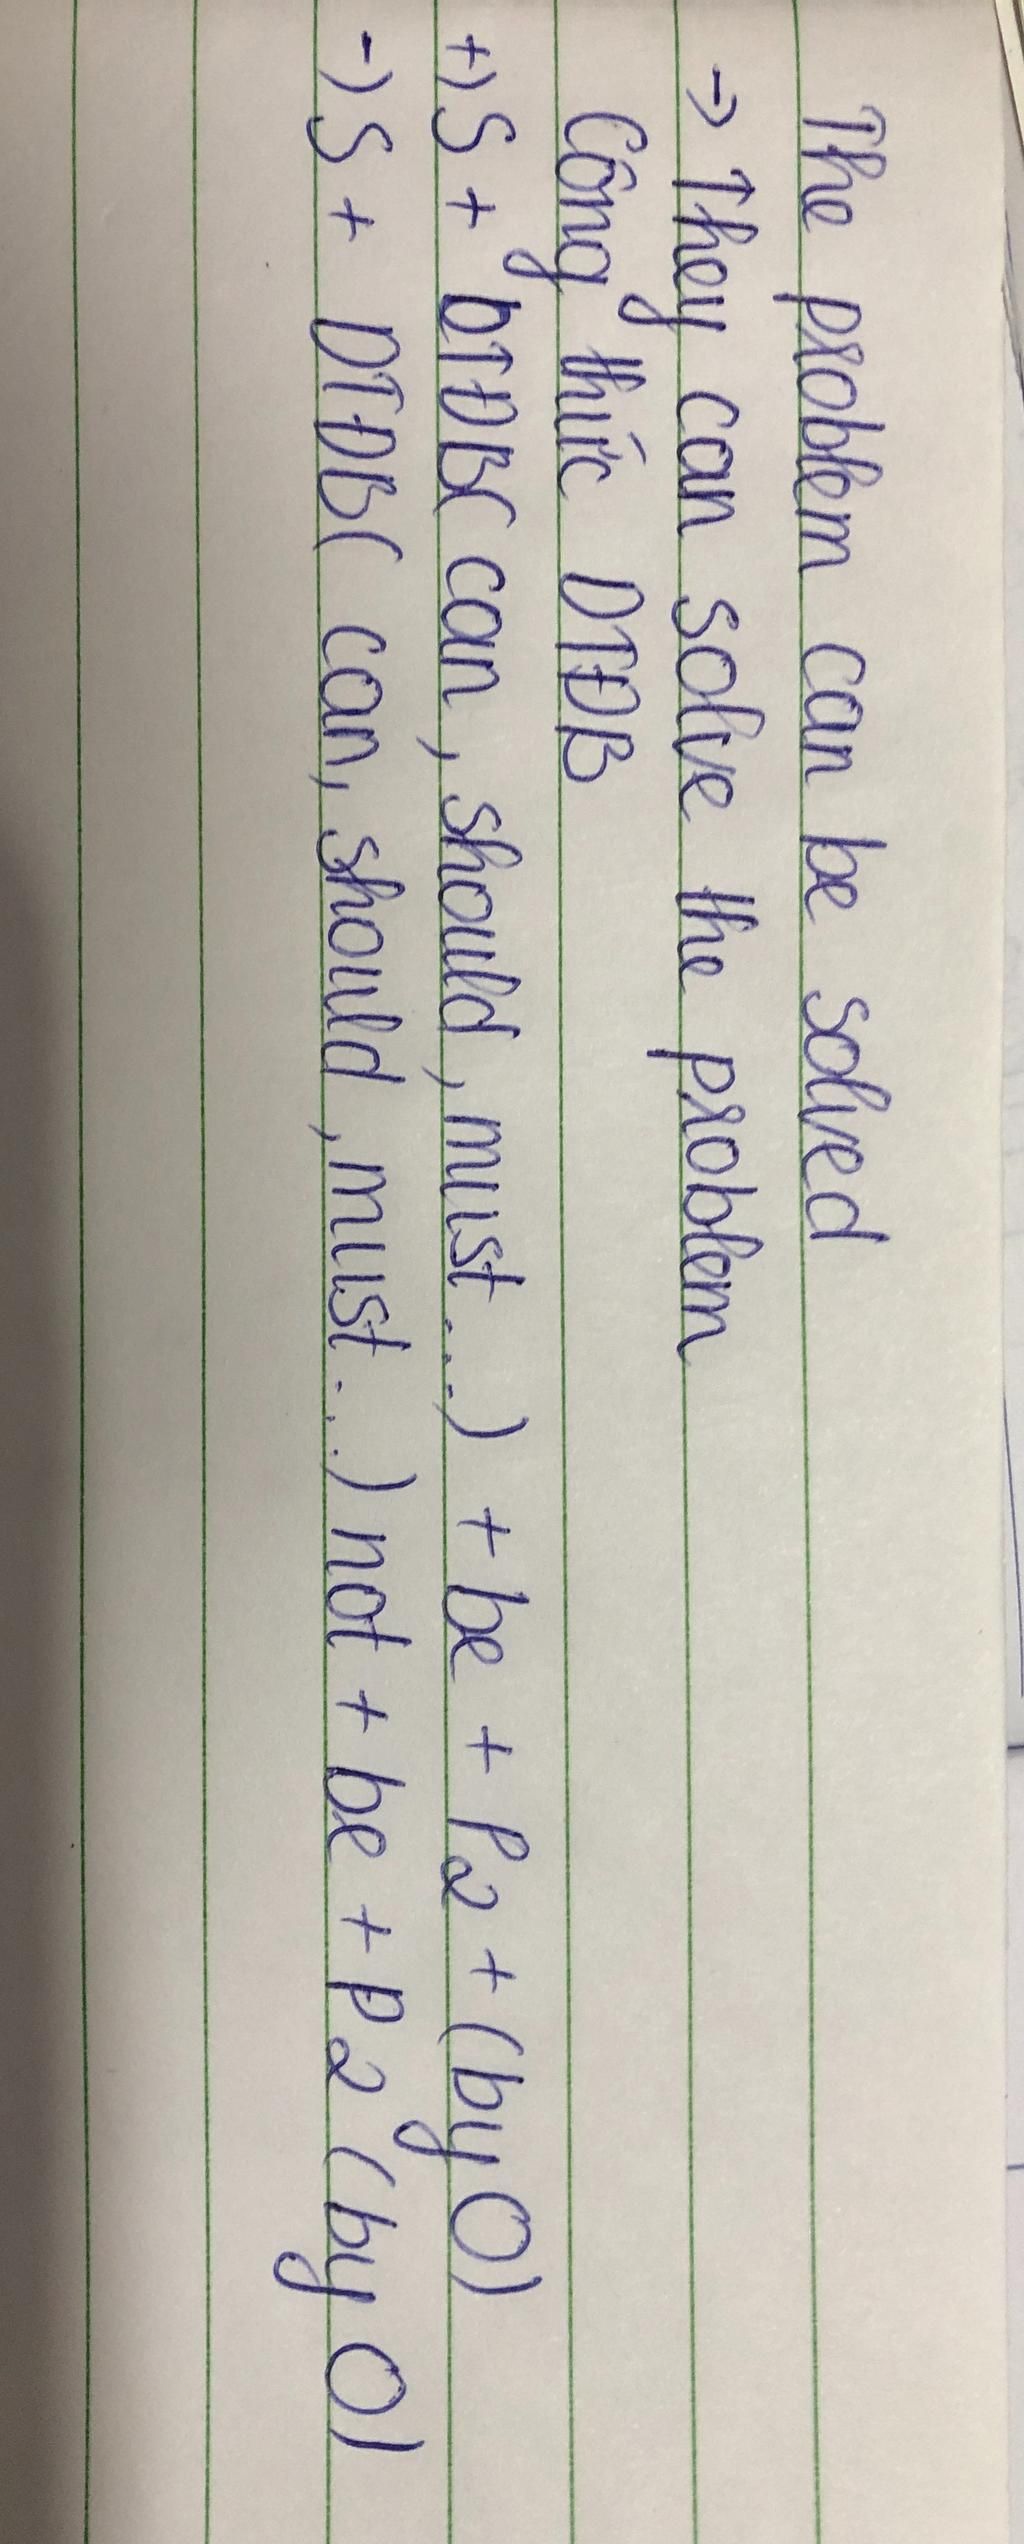 The problem can be solved
→ They can solve the problem
Công thức DTĐB
+) S + DTĐB( can, should, must...) + be + P2 + (by O)
-) S + DTĐB( can, should, must...) not + be + P2 (by O)